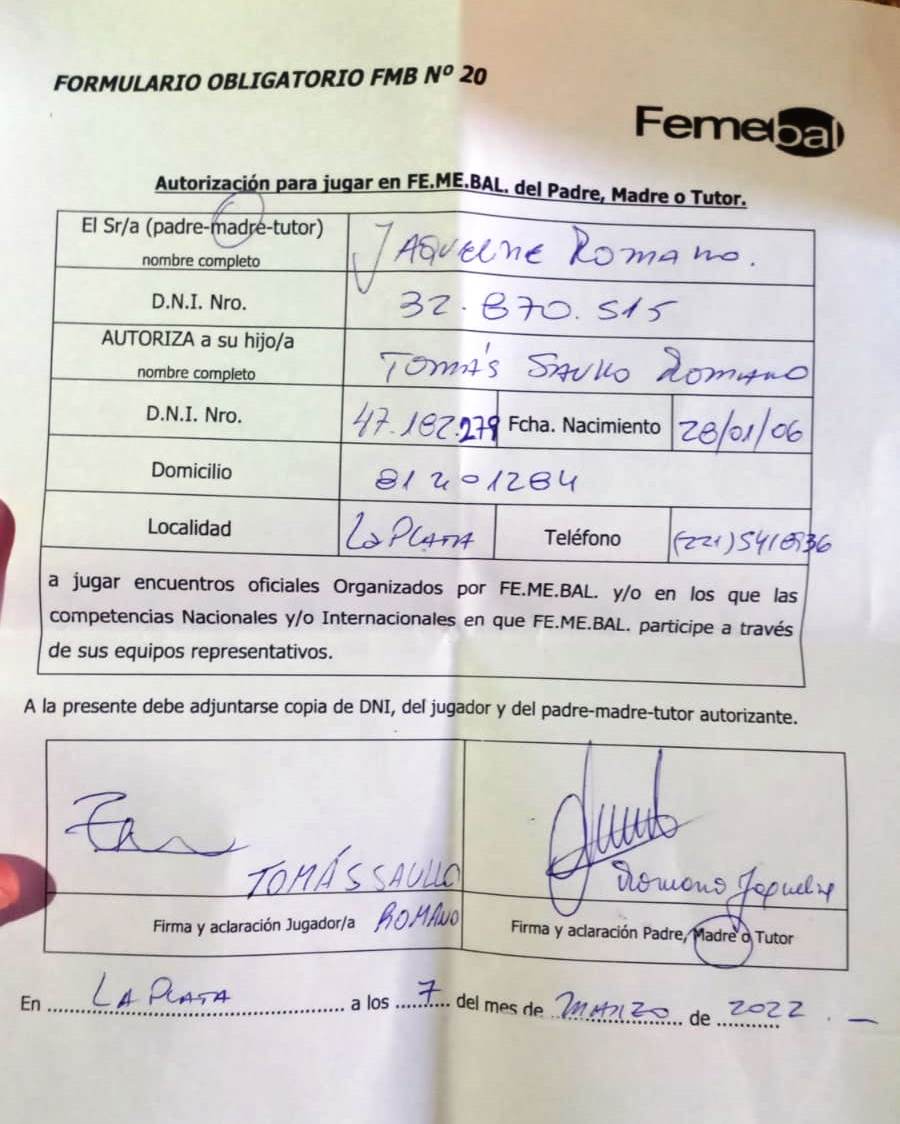 FORMULARIO OBLIGATORIO FMB Nº 20
Femebal
Autorización para jugar en FE.ME.BAL. del Padre, Madre o Tutor.
El Sr/a (padre-madre-tutor) nombre completo JAQUELINE ROMANO.
D.N.I. Nro. 32.870.515
AUTORIZA a su hijo/a nombre completo TOMÁS SAULLO ROMANO
D.N.I. Nro. 47.182.279 Fcha. Nacimiento 28/01/06
Domicilio 81 1284
Localidad La PLATA Teléfono (221)
a jugar encuentros oficiales Organizados por FE.ME.BAL. y/o en los que las
competencias Nacionales y/o Internacionales en que FE.ME.BAL. participe a través
de sus equipos representativos.
A la presente debe adjuntarse copia de DNI, del jugador y del padre-madre-tutor autorizante.
TOMÁS SAULLO
ROMANO
Firma y aclaración Jugador/a
Romano Jaqueline
Firma y aclaración Padre, Madre o Tutor
En LA PLATA a los 7 del mes de MARZO de 2022.